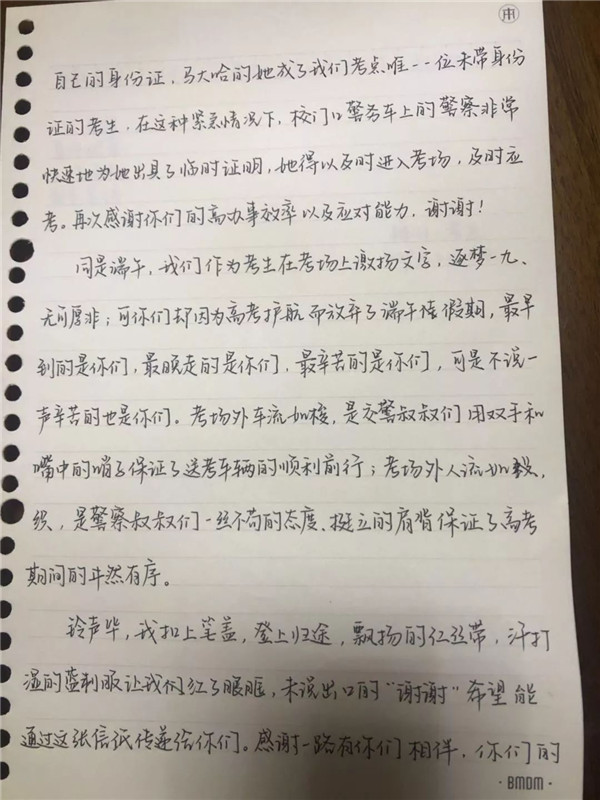 自己的身份证，马大哈的她成了我们考点唯一一位未带身份
证的考生，在这种紧急情况下，校门口警务车上的警察非常
快速地为她出具了临时证明，她得以及时进入考场，及时应
考。再次感谢你们的高办事效率以及应对能力，谢谢！
同是端午，我们作为考生在考场上激扬文字，逐梦一九、
无可厚非；可你们却因为高考护航而放弃了端午佳假期，最早
到的是你们，最晚走的是你们，最辛苦的是你们，可是不说一
声辛苦的也是你们。考场外车流如梭，是交警叔叔们用双手和
嘴中的哨子保证了送考车辆的顺利前行；考场外人流如
织，是警察叔叔们一丝不苟的态度、挺立的肩背保证了高考
期间的井然有序。
铃声毕，我扣上笔盖，登上归途，飘扬的红丝带，汗打
湿的蓝制服让我们红了眼眶，未说出口的“谢谢”希望能
通过这张信纸传递给你们。感谢一路有你们相伴，你们的
BMDM